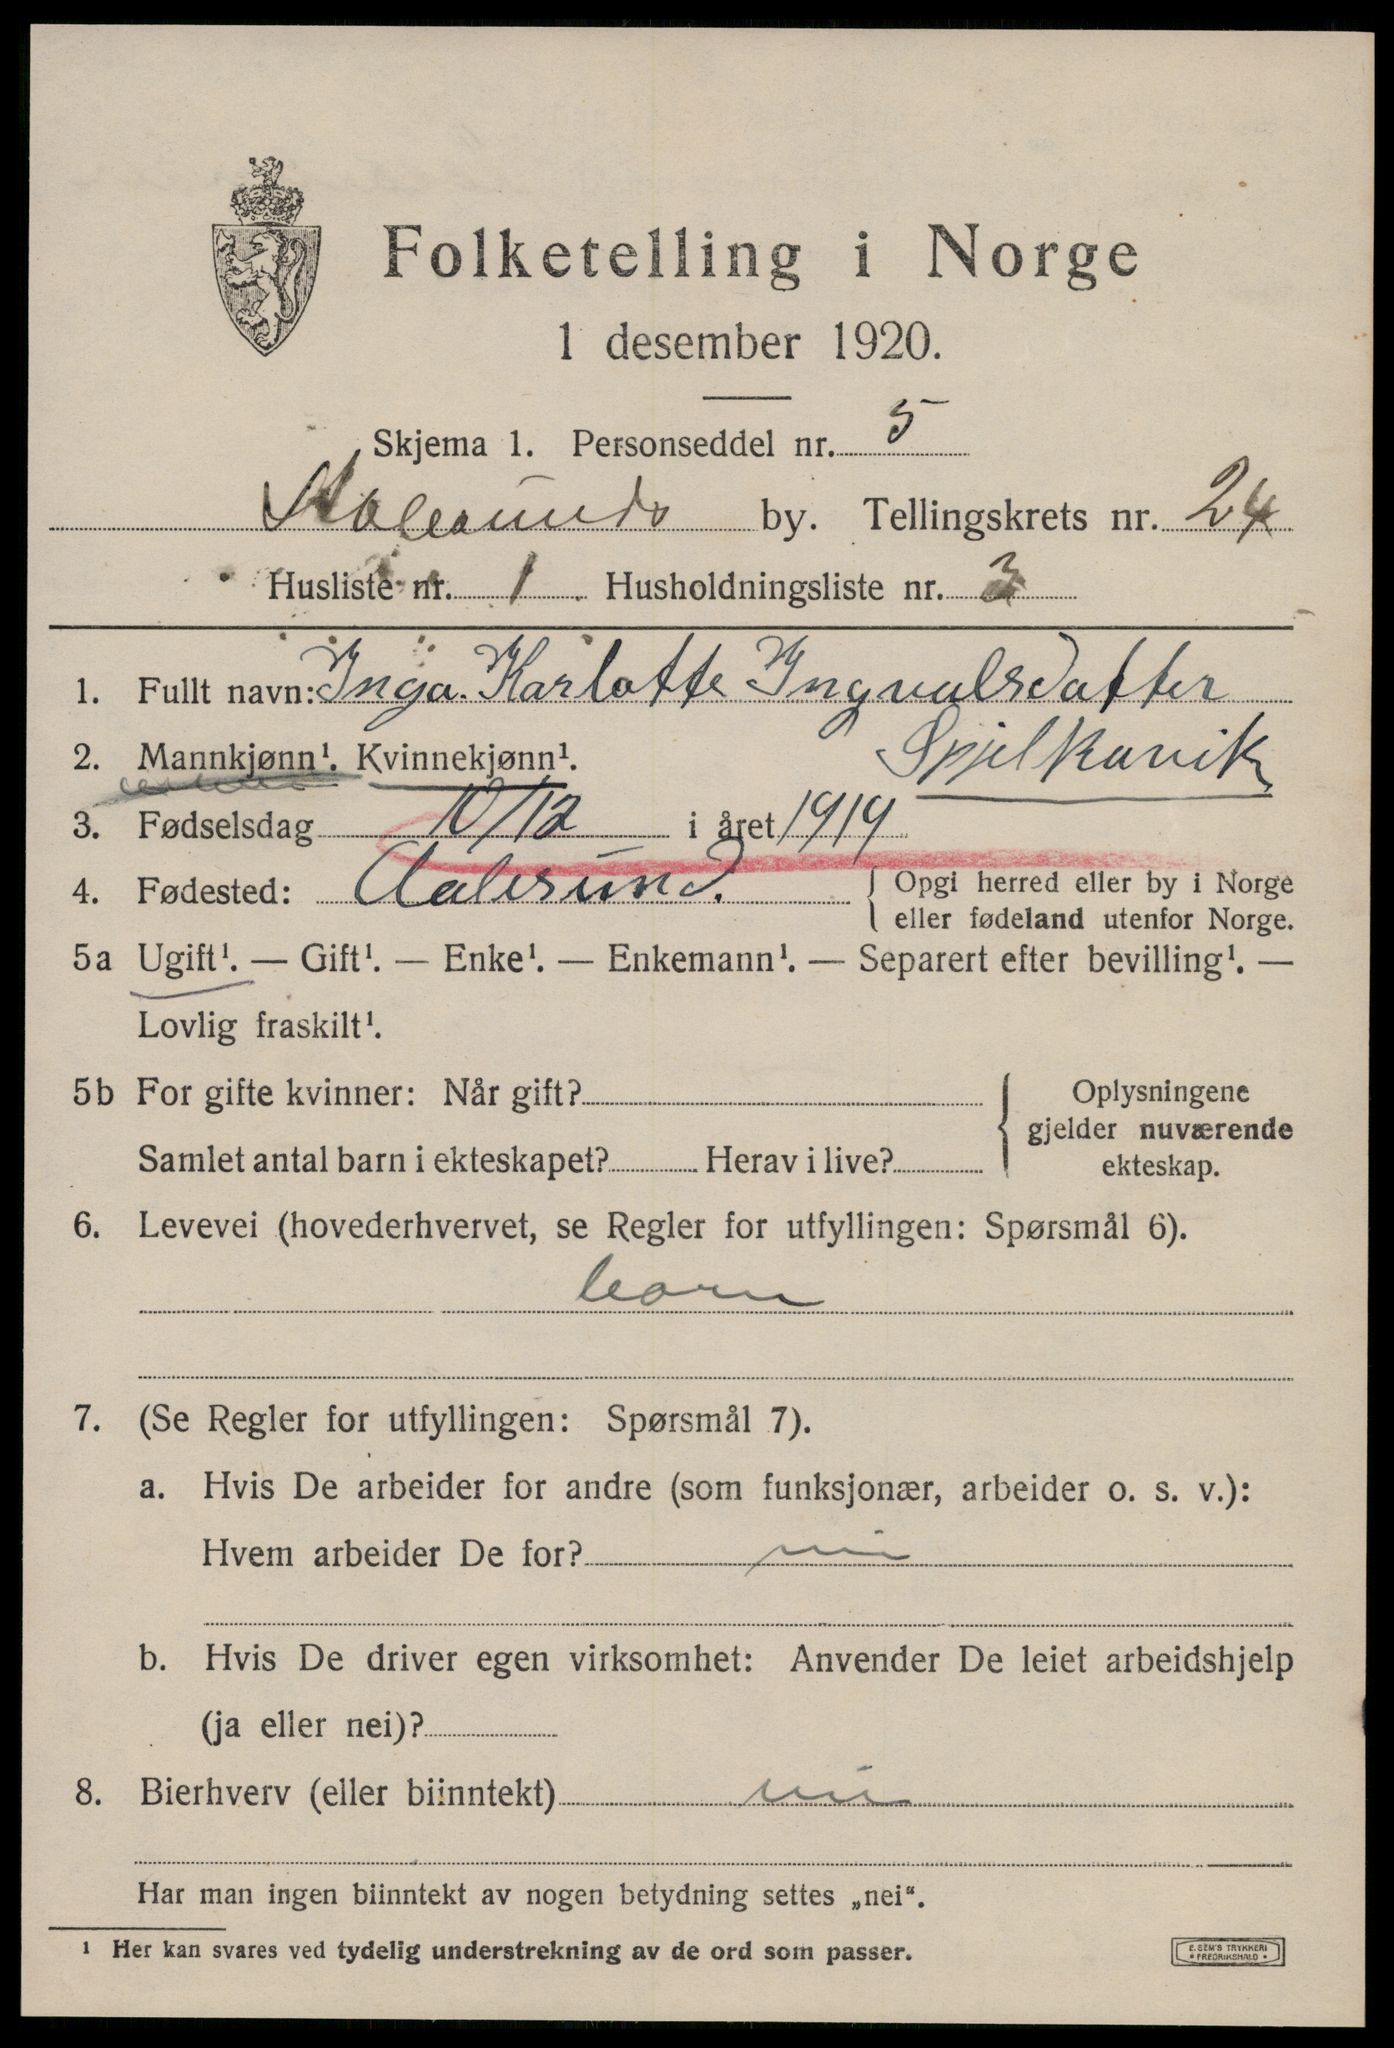 Folketelling i Norge
1 desember 1920.
Skjema 1. Personseddel nr. 5
Aalesunds by. Tellingskrets nr. 24
Husliste nr. 1 Husholdningsliste nr. 3
1. Fullt navn: Inga Karlotte Ingvalsdatter
Spjelkavik
2. Mannkjønn¹. Kvinnekjønn¹.
3. Fødselsdag 10/12 i året 1919
4. Fødested: Aalesund. { Opgi herred eller by i Norge
eller fødeland utenfor Norge.
5a Ugift¹. — Gift¹. — Enke¹. — Enkemann¹. — Separert efter bevilling¹. —
Lovlig fraskilt¹.
5b For gifte kvinner: Når gift? { Oplysningene
gjelder nuværende
Samlet antal barn i ekteskapet? Herav i live? ekteskap.
6. Levevei (hovederhvervet, se Regler for utfyllingen: Spørsmål 6).
barn
7. (Se Regler for utfyllingen: Spørsmål 7).
a. Hvis De arbeider for andre (som funksjonær, arbeider o. s. v.):
Hvem arbeider De for?
b. Hvis De driver egen virksomhet: Anvender De leiet arbeidshjelp
(ja eller nei)?
8. Bierhverv (eller biinntekt) nei
Har man ingen biinntekt av nogen betydning settes „nei“.
¹ Her kan svares ved tydelig understrekning av de ord som passer.
E. SEM'S TRYKKERI
• FREDRIKSHALD •